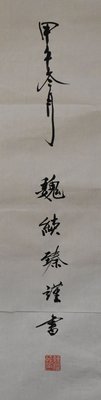 甲午冬月
魏績臻謹書